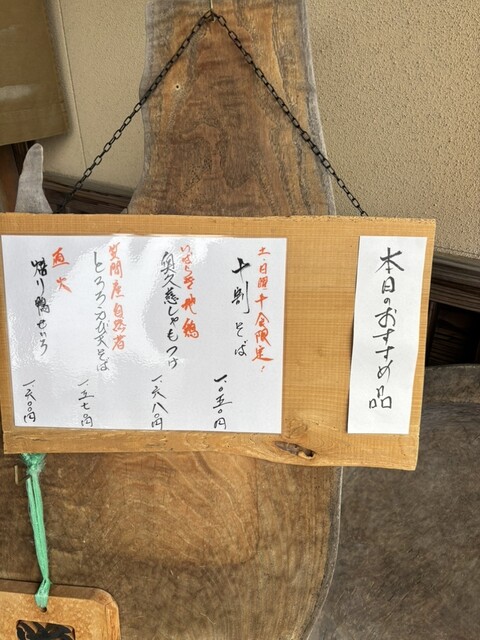 本日のおすすめ品
土・日曜十食限定!
十割そば
一、〇五〇円
いばらき地鶏
奥久慈しゃもつけ
一、六八〇円
笠間産自然薯
とろろえび天そば
一、五七〇円
直火
焙り鴨せいろ
一、六〇〇円